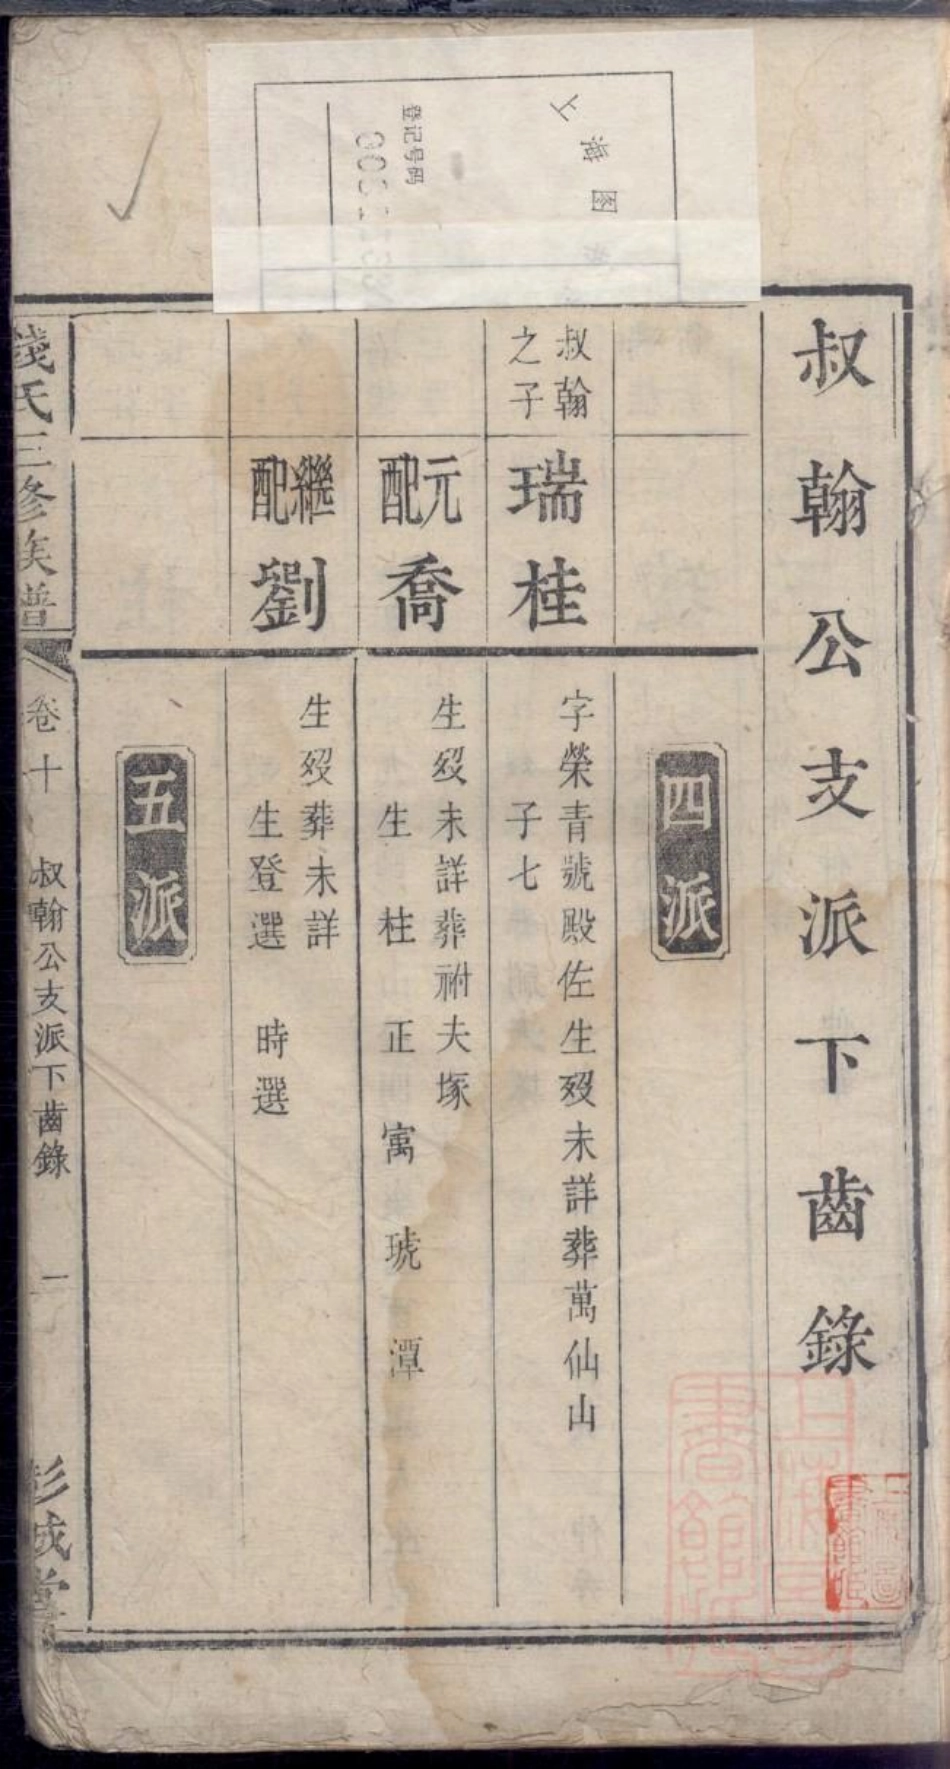 叔翰公支派下齒錄
四派
叔翰
之子
瑞桂
字榮青號殿佐生歿未詳葬萬仙山
子七
元配
喬
生歿未詳葬祔夫塚
生 柱 正 寓 琥 潭
繼配
劉
生歿葬未詳
生登選 時選
五派
錢氏三修族譜
卷十 叔翰公支派下齒錄 一
彭城堂
上海图
登记号码
上海圖書館藏